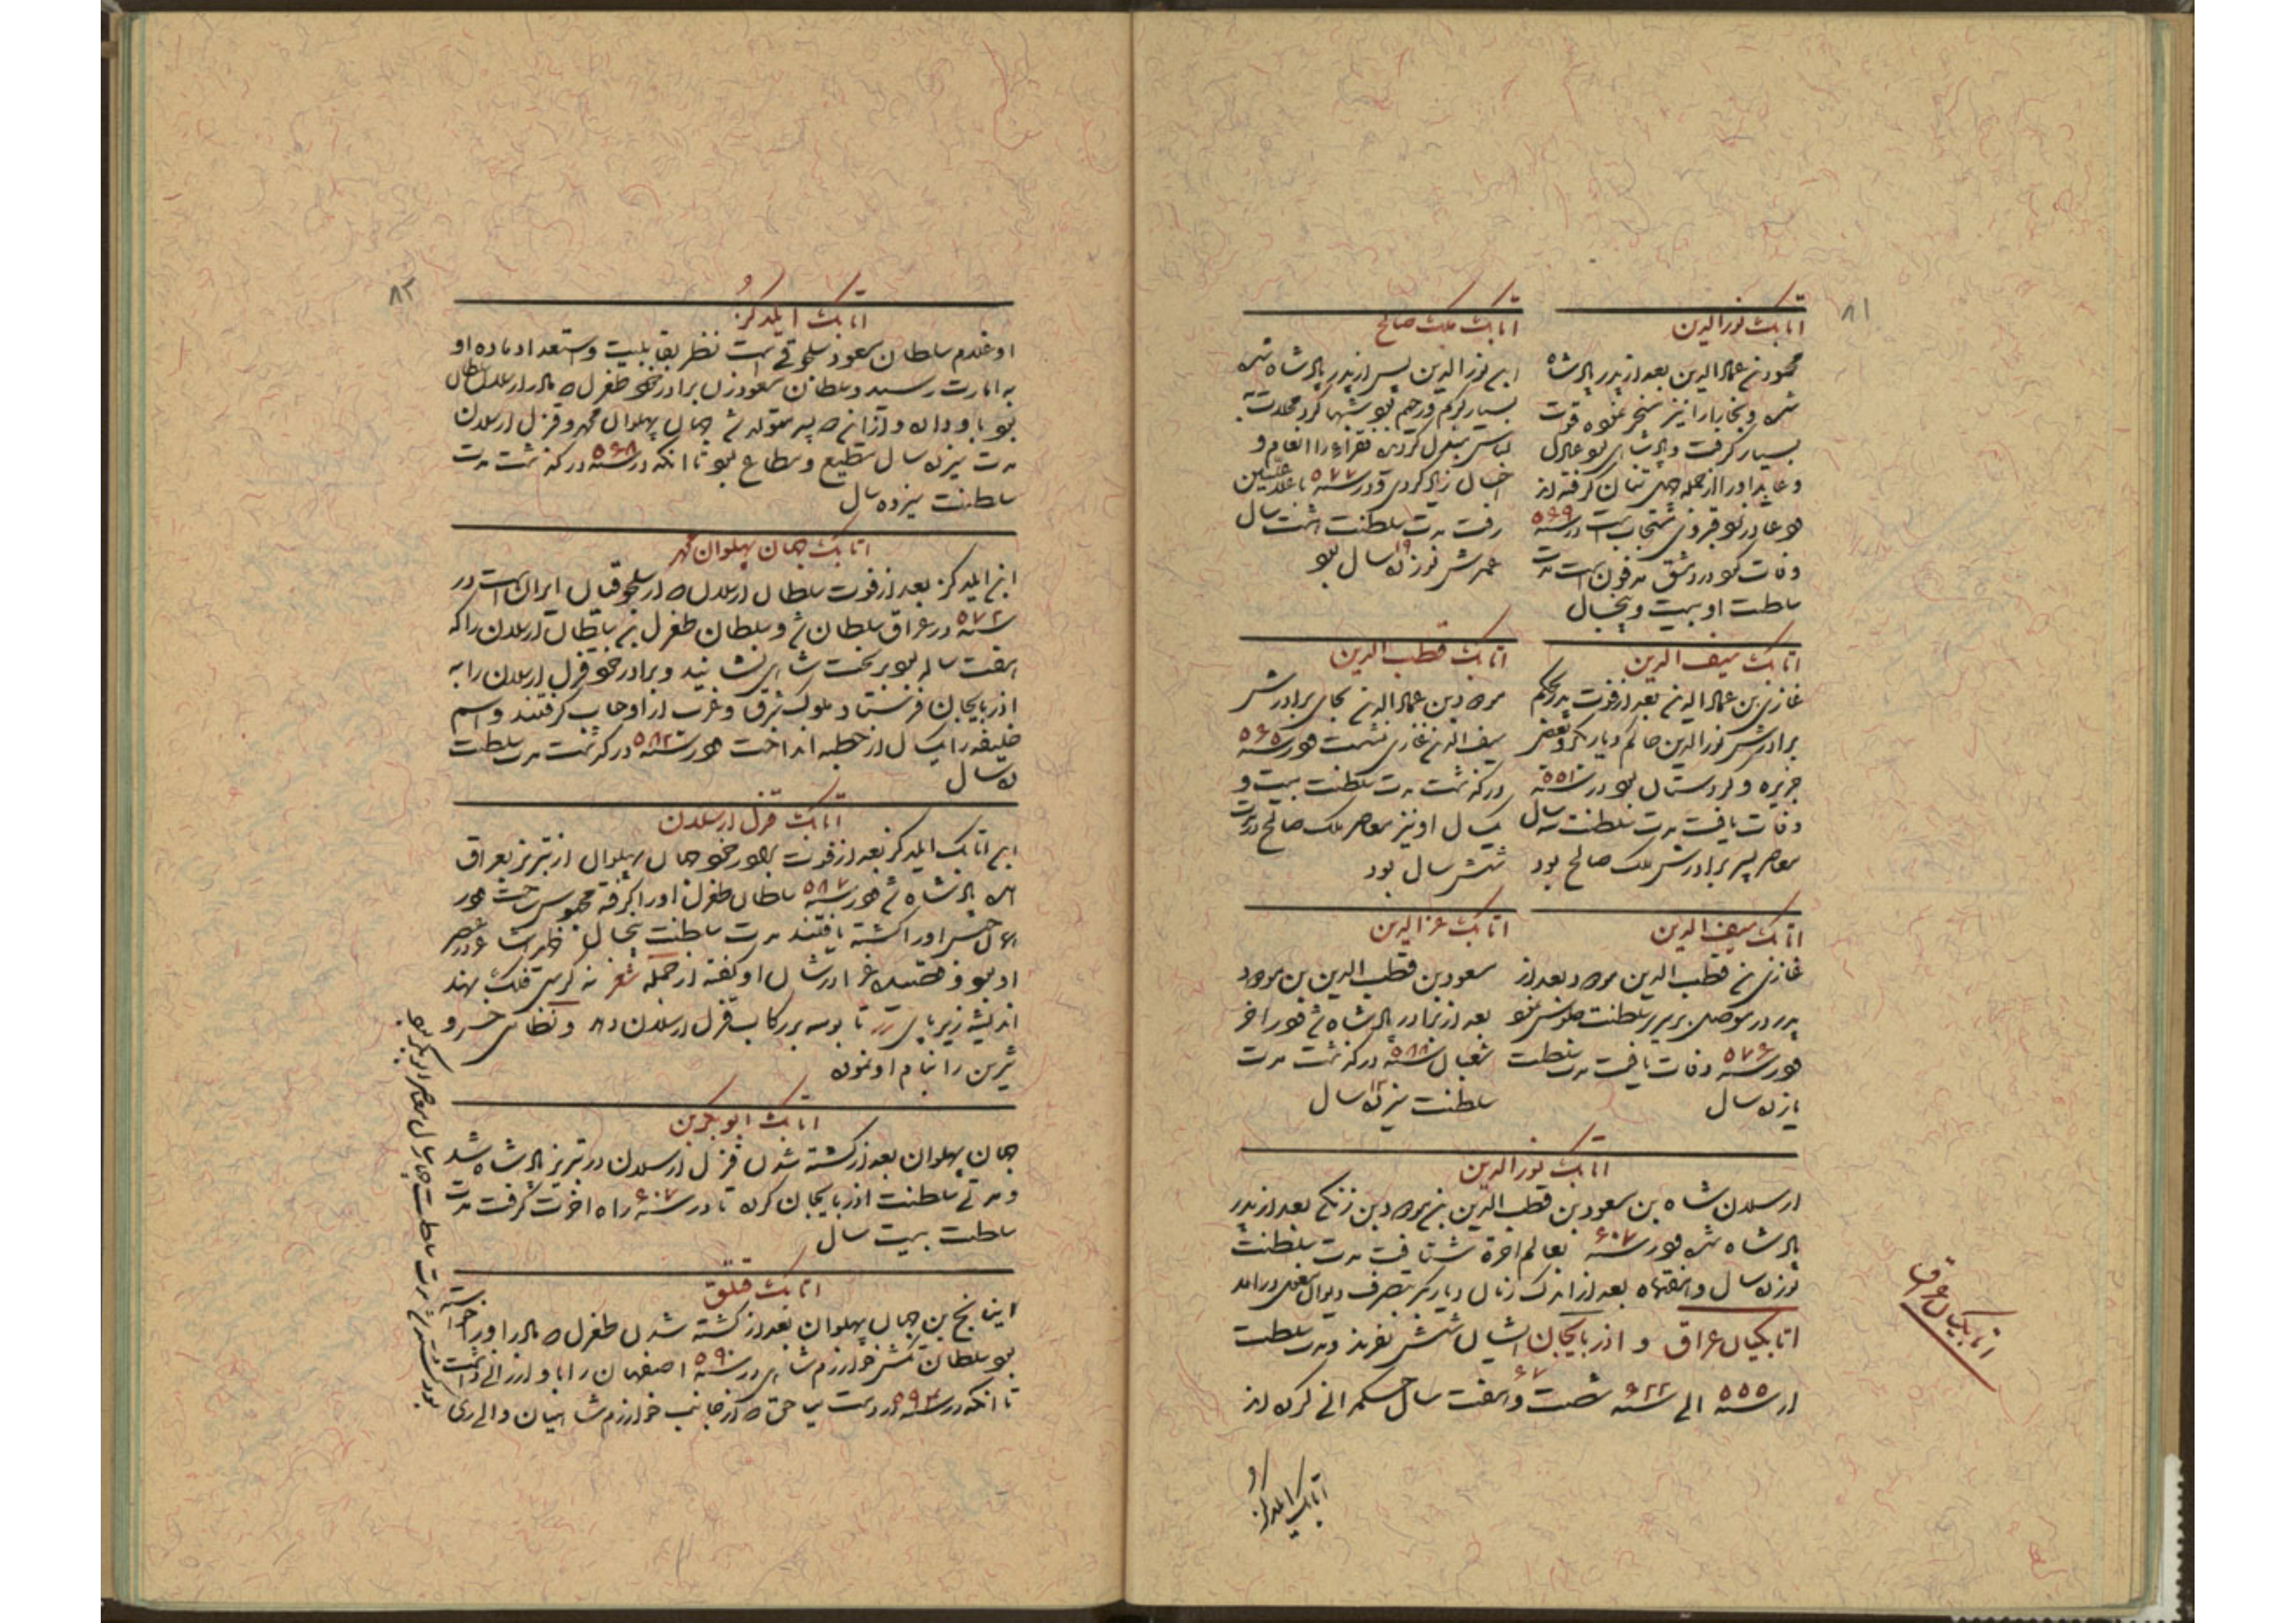 ۸۱
اتابک نورالدین
محمود بن عمادالدین بعد از پدر پادشاه
شده و بخارا را نیز مسخر نموده قوت
بسیار گرفت و پادشاهی بود عادل
و عابد او را از جمله چهل تنان گرفته اند
وفات کرد در دمشق مدفون است مدت
سلطنت او بیست و پنجسال
اتابک ملک صالح
ابن نورالدین پس از پدر پادشاه شد
بسیار کریم و رحیم بود شبها کرد محلات به
لباس مبدل کردیده فقراء را انعام و
رفت مدت سلطنت هشت سال
عمرش نوزده ۱۹ سال بود
اتابک سیف الدین
غازی بن عمادالدین بعد از فوت پدر بحکم
برادرش نورالدین حاکم دیار بکر و بعضی
جزیره و کردستان بود در سنه ۵۵۱
وفات یافت مدت سلطنت سه سال
معاصر پسر برادرش ملک صالح بود
اتابک قطب الدین
مودود بن عمادالدین بجای برادرش
سیف الدین غازی بنشست و در سنه ۵۶۵
درگذشت مدت سلطنت بیست و
یکسال او نیز معاصر ملک صالح در مدت
شش سال بود
اتابک سیف الدین
غازی بن قطب الدین مودود بعد از
پدر در موصل بر سریر سلطنت جلوس نمود
و در سنه ۵۷۶ وفات یافت مدت سلطنت
یازده سال
اتابک عزالدین
مسعود بن قطب الدین بن مودود
بعد از برادر پادشاه شد و در اخر
شعبان سنه ۵۸۸ درگذشت مدت
سلطنت سیزده ۱۳ سال
اتابک نورالدین
ارسلان شاه بن مسعود بن قطب الدین بن مودود بن زنگی بعد از پدر
پادشاه شده و در سنه ۶۰۷ بعالم اخرة شتافت مدت سلطنت
نوزده سال و هفتماه بعد از اندک زمان دیار بکر بتصرف دیوان مغول درامد
اتابکیان عراق و اذربایجان ایشان شش نفرند و مدت سلطنت
از سنه ۵۵۵ الی سنه ۶۲۲ شصت و هفت ۶۷ سال حکمرانی کرده اند
اتابکیان عراق
اتابک ایلدکز
۸۲
اتابک ایلدکز
او غلام سلطان مسعود سلجوقی است نظر بقابلیت و استعداد ماده او
به امارت رسید و سلطان مسعود زن برادر خود طغرل که مادر ارسلان سلطان
بود باو داده و از انزن دو پسر متولد شد جهان پهلوان محمد و قزل ارسلان
مدت سیزده سال مطیع و مطاع بود تا انکه در سنه ۵۶۸ درگذشت مدت
سلطنت سیزده سال
اتابک جهان پهلوان محمد
ابن ایلدکز بعد از فوت سلطان ارسلان که از سلجوقیان ایران است در
سنه ۵۷۲ در عراق سلطان شد و سلطان طغرل بن سلطان ارسلان را که
هفت ساله بود بر تخت شاهی نشانید و برادر خود قزل ارسلان را به
اذربایجان فرستاد ملوک شرق و غرب از او حساب گرفتند و اسم
خلیفه را یکسال از خطبه انداخت و در سنه ۵۸۲ درگذشت مدت سلطنت
ده سال
اتابک قزل ارسلان
ابن اتابک ایلدکز بعد از فوت برادر خود جهان پهلوان از تبریز بعراق
امده پادشاه شد و در سنه ۵۸۷ سلطان طغرل او را گرفته محبوس ساخت و در
او بود و قصیده غرا در شان او گفته از جمله شعر نه کرسی فلک نهد
اندیشه زیر پای تا بوسه بر رکاب قزل ارسلان دهد و نظامی خسرو
شیرین را بنام او نموده
اتابک ابوبکر بن
جهان پهلوان بعد از کشته شدن قزل ارسلان در تبریز پادشاه شد
و مدتی سلطنت اذربایجان کرده تا در سنه ۶۰۷ راه اخرت گرفت مدت
سلطنت بیست سال
اتابک قتلق
اینانج بن جهان پهلوان بعد از کشته شدن طغرل که مادر او را خواسته
بود سلطان تکش خوارزم شاهی در سنه ۵۹۰ اصفهان را باو ارزانی داشت
تا انکه در سنه ۵۹۲ در دست میاجق که از جانب خوارزم شاهیان والی ری